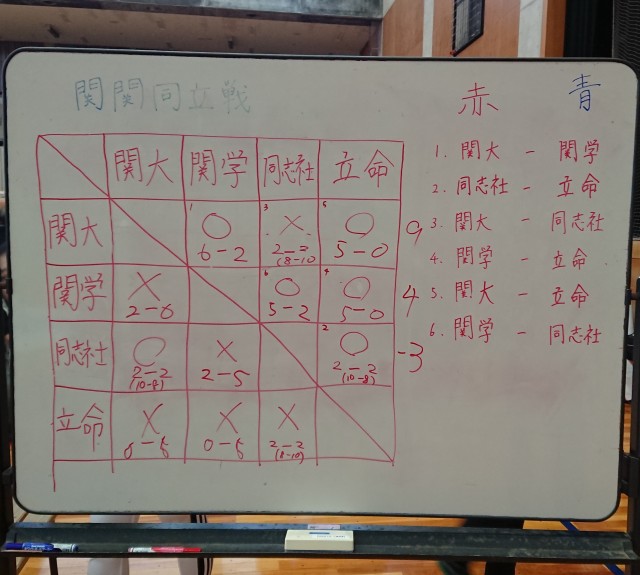 関関同立戦
関大 関学 同志社 立命
関大 1 ○ 6-2 3 × 2-2 (8-10 5 ○ 5-0 9
関学 × 2-6 6 ○ 5-2 4 ○ 5-0 4
同志社 ○ 2-2 (10-8) × 2-5 2 ○ 2-2 (10-8) -3
立命 × 0-5 × 0-5 × 2-2 (8-10)
赤 青
1. 関大 - 関学
2. 同志社 - 立命
3. 関大 - 同志社
4. 関学 - 立命
5. 関大 - 立命
6. 関学 - 同志社